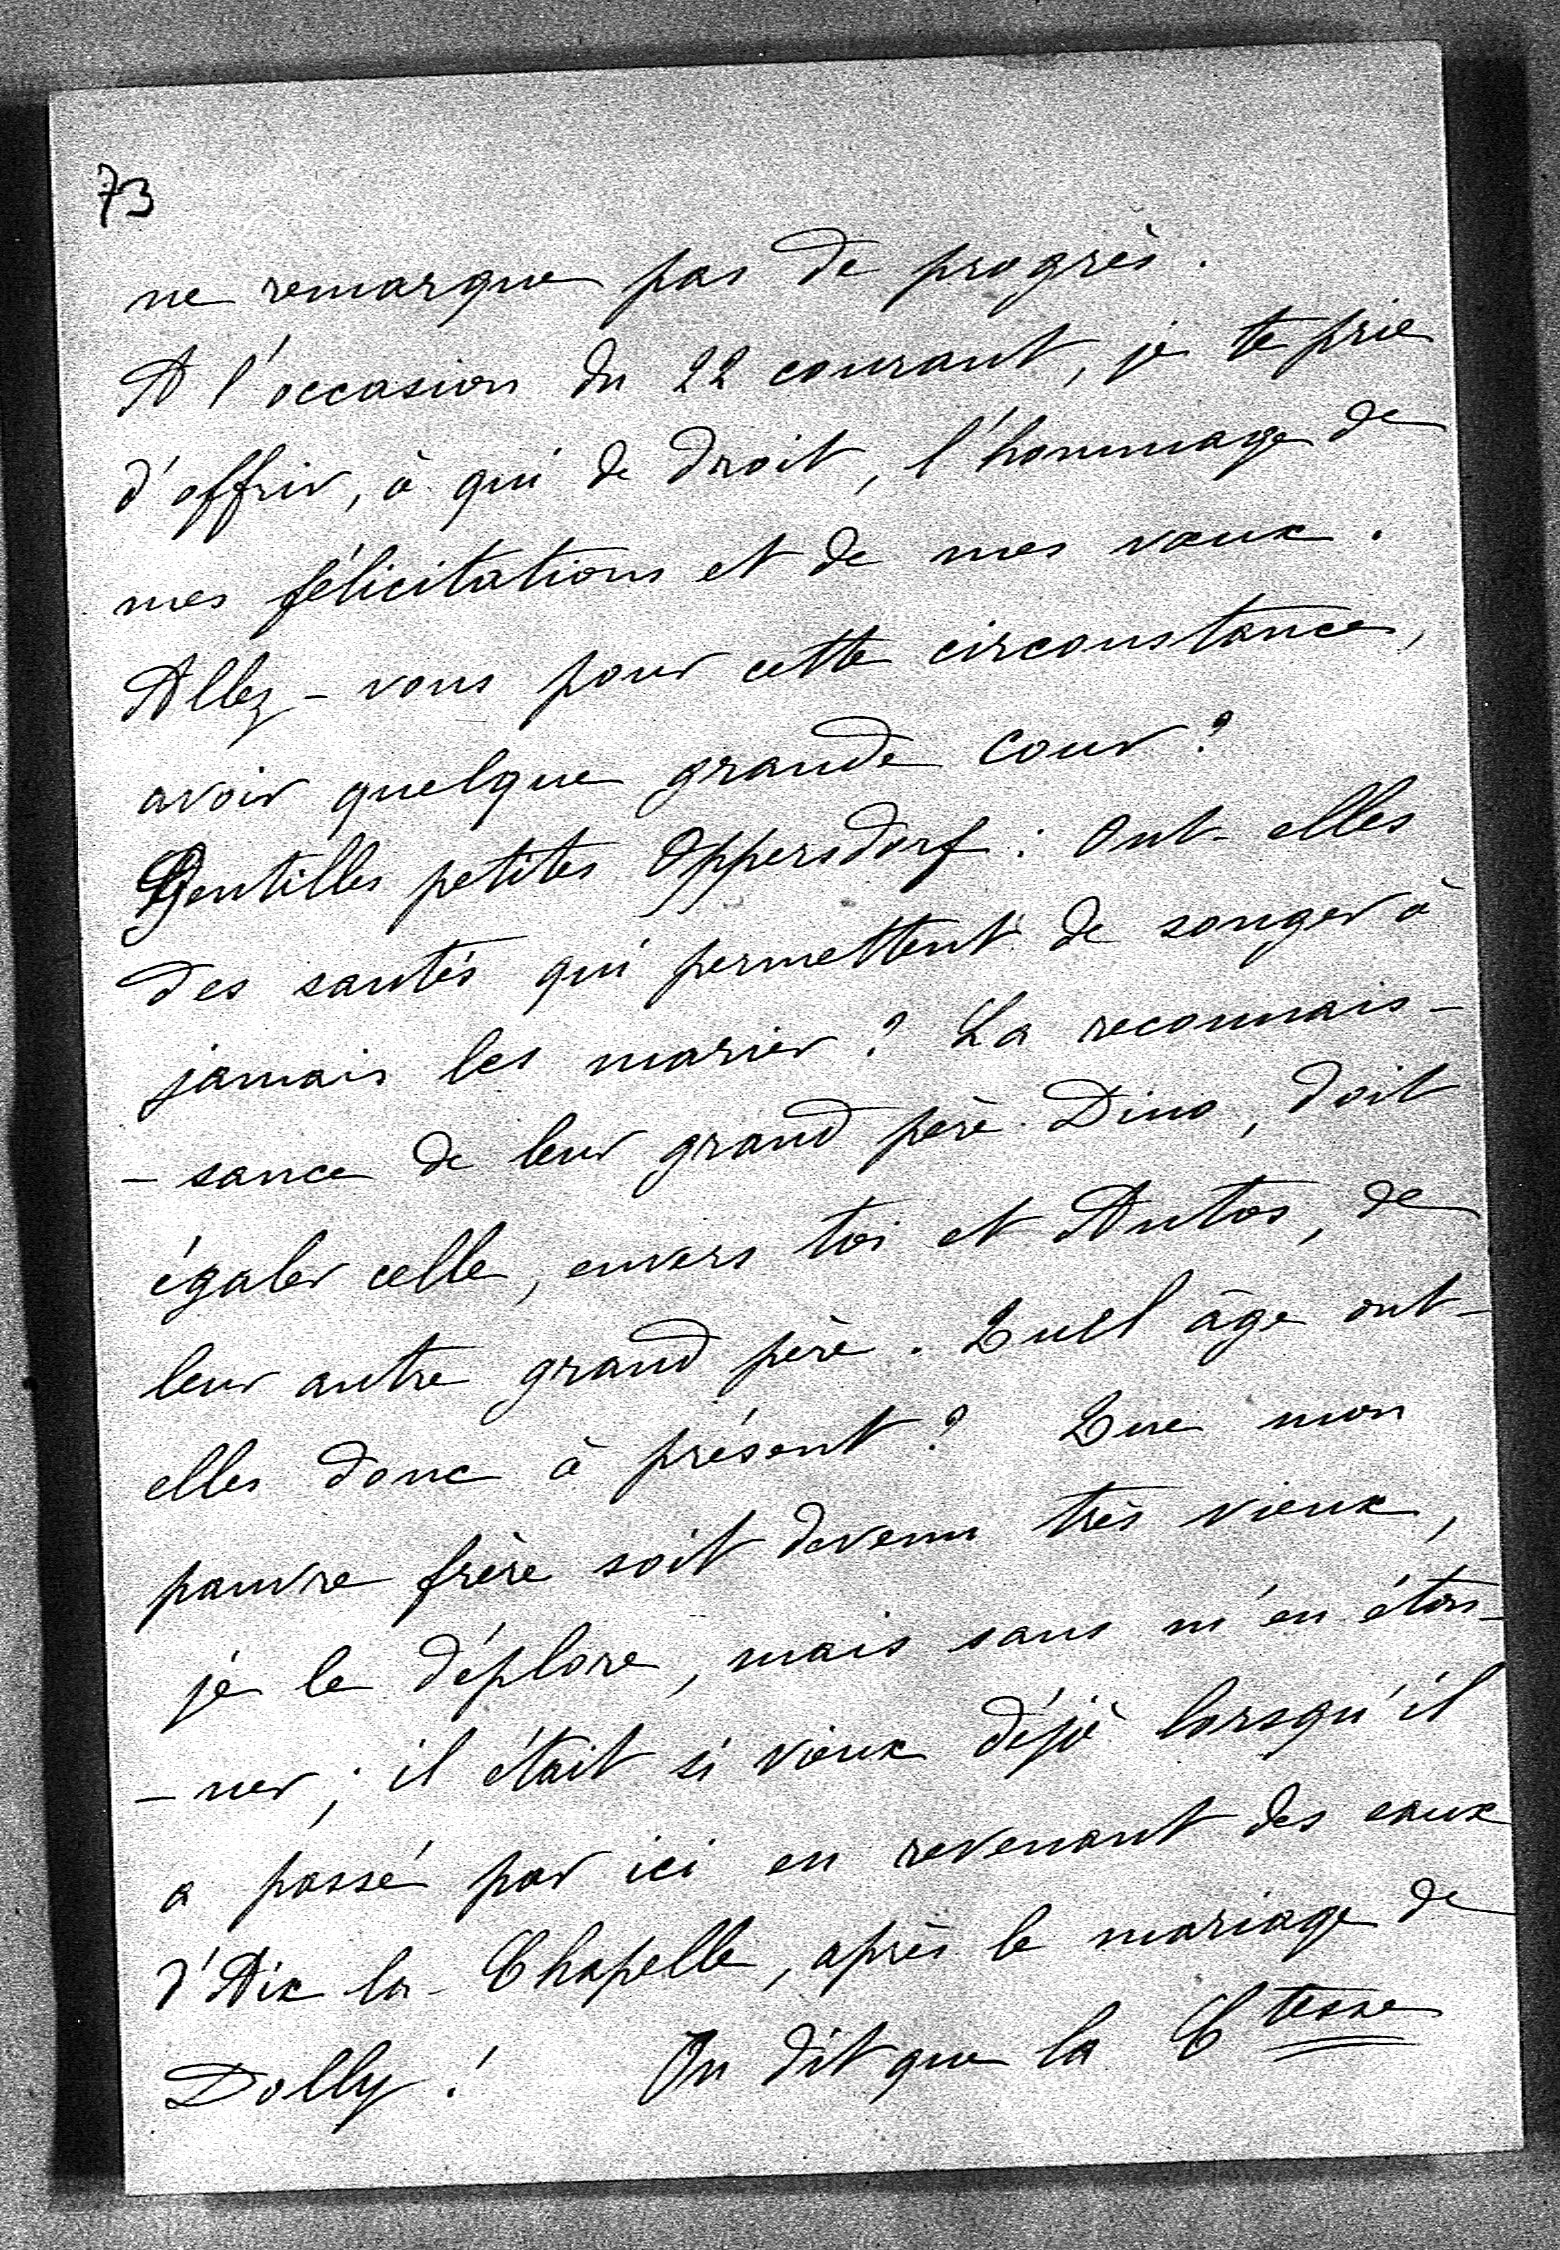 73
ne remarque pas de progrès.
A l'occasion du 22 courant, je te prie
d'offrir, à qui de droit, l'hommage de
mes félicitations et de mes vœux.
Allez-vous pour cette circonstance,
avoir quelque grande cour?
Gentilles petites Oppersdorf: Ont-elles
des santés qui permettent de songer à
jamais les marier? La reconnais-
-sance de leur grand père Dino, doit
égaler celle, envers toi et Antos, de
leur autre grand père. Quel âge ont-
elles donc à présent? Que mon
pauvre frère soit devenu très vieux,
je le déplore, mais sans m'en éton-
-ner; il était si vieux déjà lorsqu'il
a passé par ici en revenant des eaux
d'Aix la-Chapelle, après le mariage de
Dolly! On dit que la Ctesse